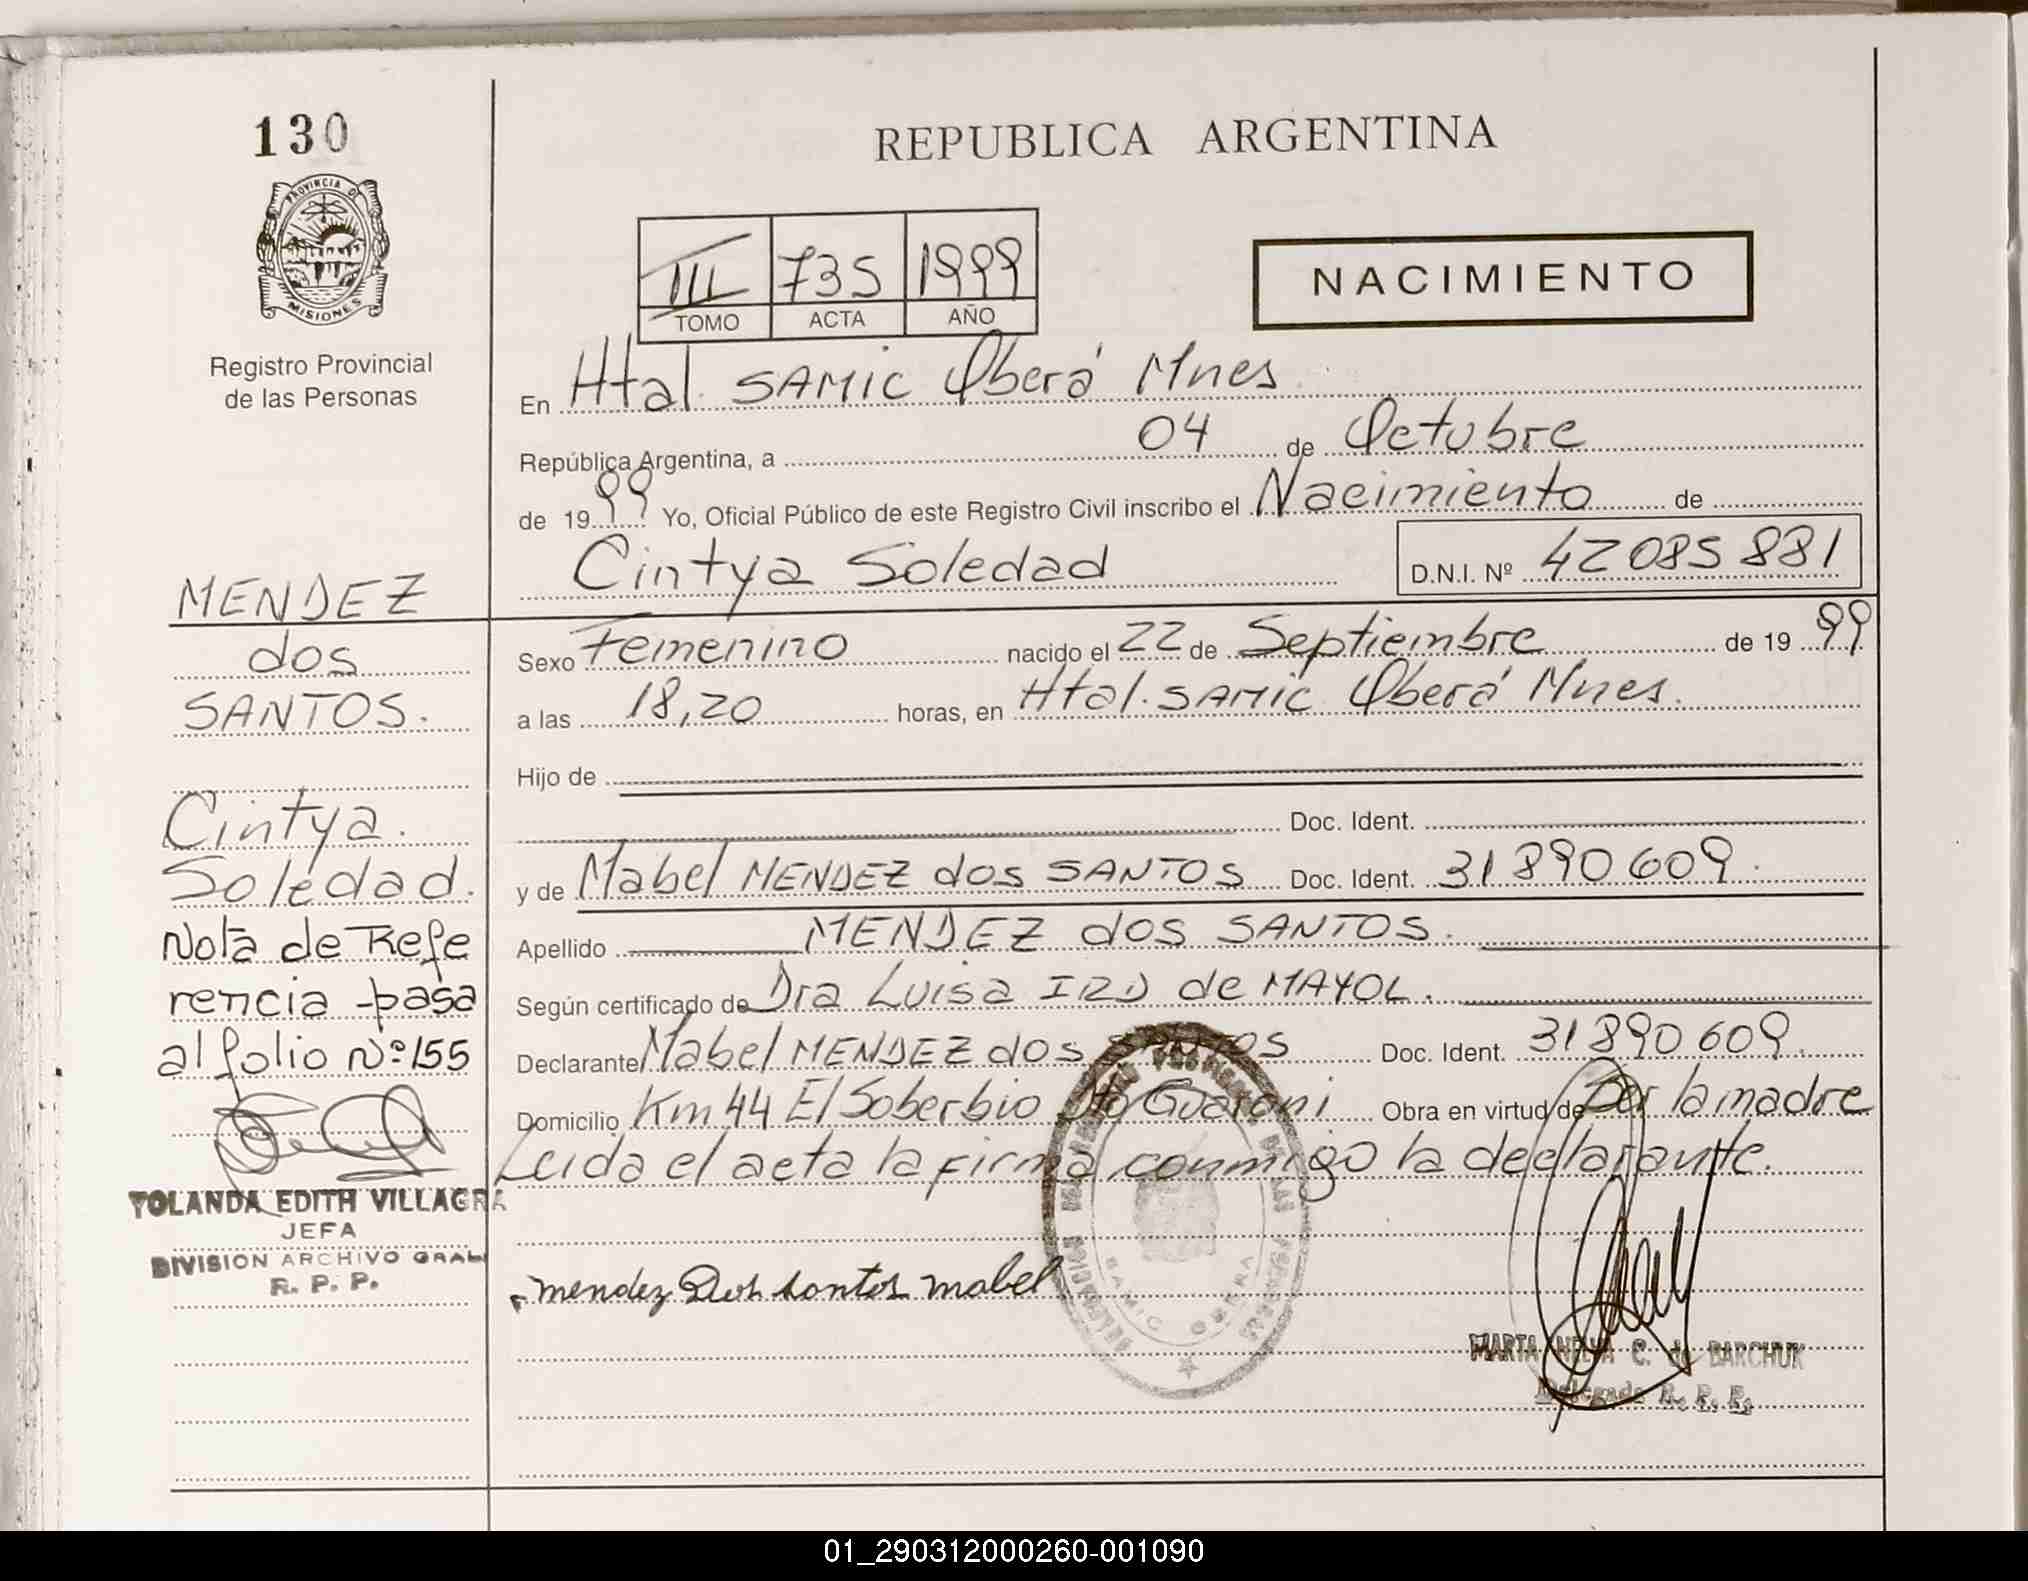 130
REPUBLICA ARGENTINA
PROVINCIA DE
MISIONES
III 735 1999
TOMO ACTA AÑO
NACIMIENTO
Registro Provincial
de las Personas
En Htal. SAMIC Oberá Mnes
República Argentina, a 04 de Octubre
de 1999 Yo, Oficial Público de este Registro Civil inscribo el Nacimiento de
Cintya Soledad D.N.I. Nº 42 085 881
MENDEZ
dos
SANTOS.
Cintya.
Soledad.
Nota de Refe
rencia pasa
al folio Nº 155
YOLANDA EDITH VILLAGRA
JEFA
DIVISION ARCHIVO GRAL
R. P. P.
Sexo Femenino nacido el 22 de Septiembre de 1999
a las 18,20 horas, en Htal. SAMIC Oberá Mnes.
Hijo de
Doc. Ident.
y de Mabel MENDEZ dos SANTOS Doc. Ident. 31 890 609.
Apellido MENDEZ dos SANTOS.
Según certificado de Dra Luisa de MAYOL.
Declarante Mabel MENDEZ dos SANTOS Doc. Ident. 31 890 609.
Domicilio Km 44 El Soberbio Dto Guaraní Obra en virtud de Por la madre
Leida el acta la firma conmigo la declarante.
mendez Dos santos mabel
SAMIC OBERA
MARTA NELVA C. de BARCHUK
Delegada R. P. P.
01_290312000260-001090